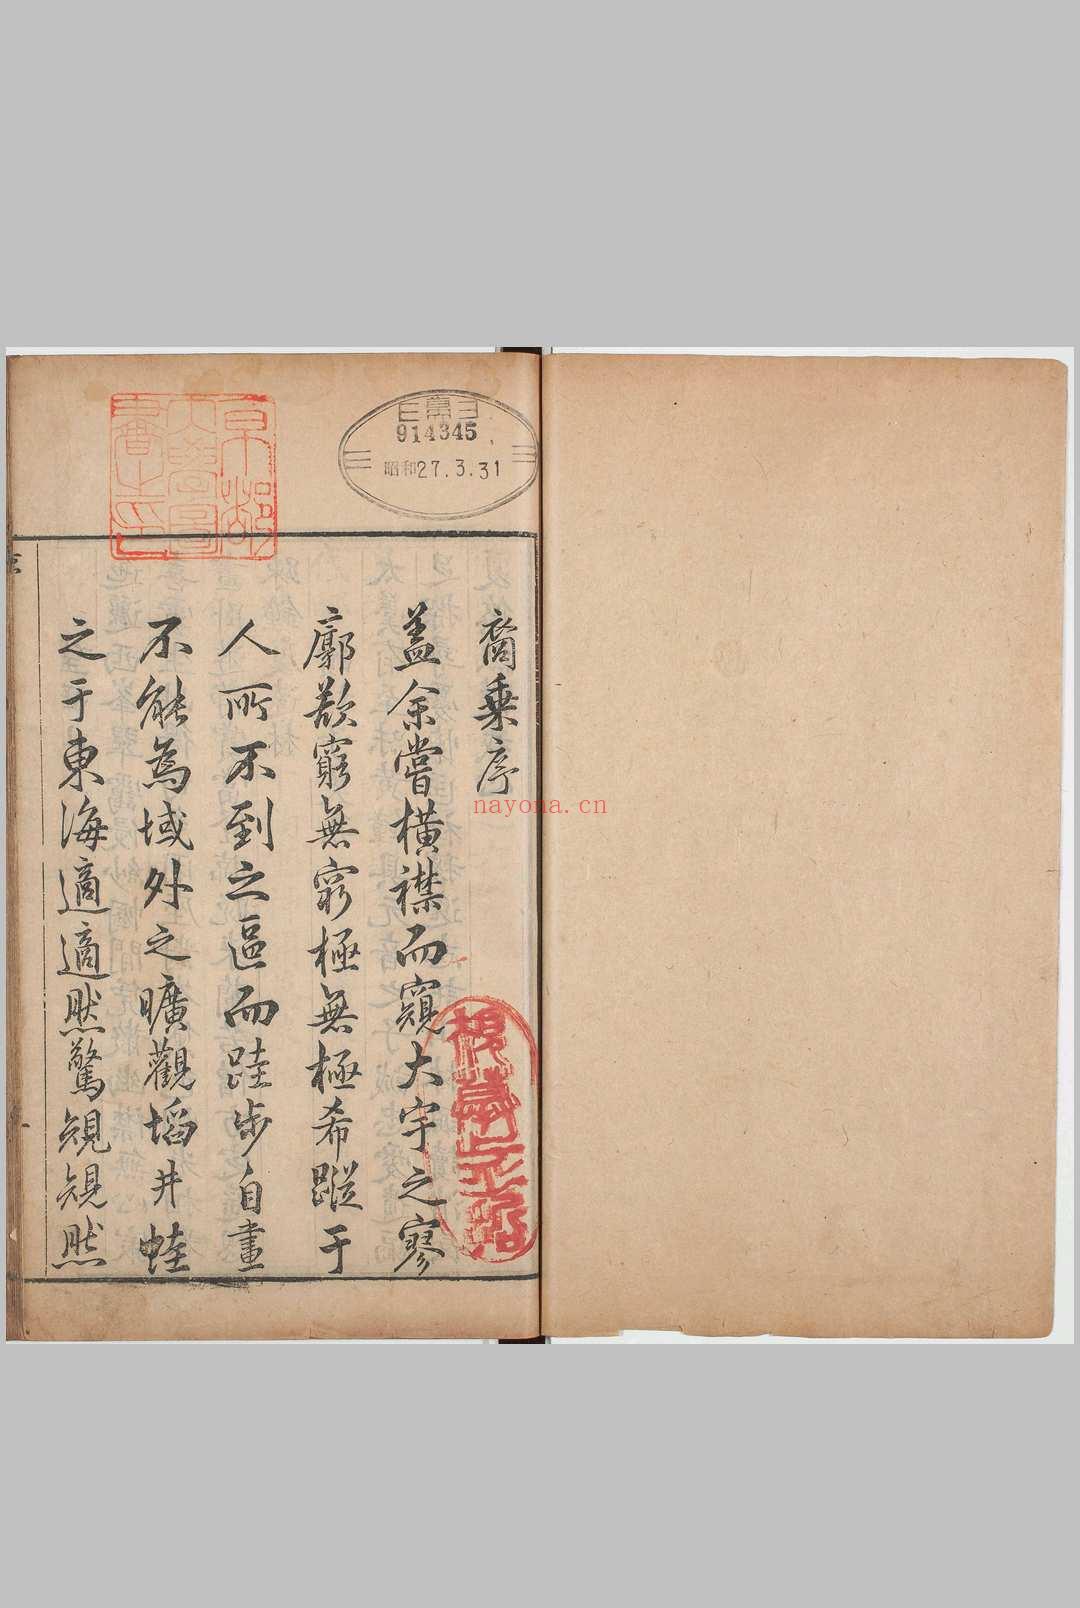 裔乘序
蓋余嘗橫襟而窺大宇之寥
廓欲窮無窮極無極希蹤于
人所不到之區而跬步自畫
不能為域外之曠觀埳井蛙
之于東海適適然驚䂓䂓然
京都
大學圖
書之印
914345
昭和27.3.31
nayona.cn